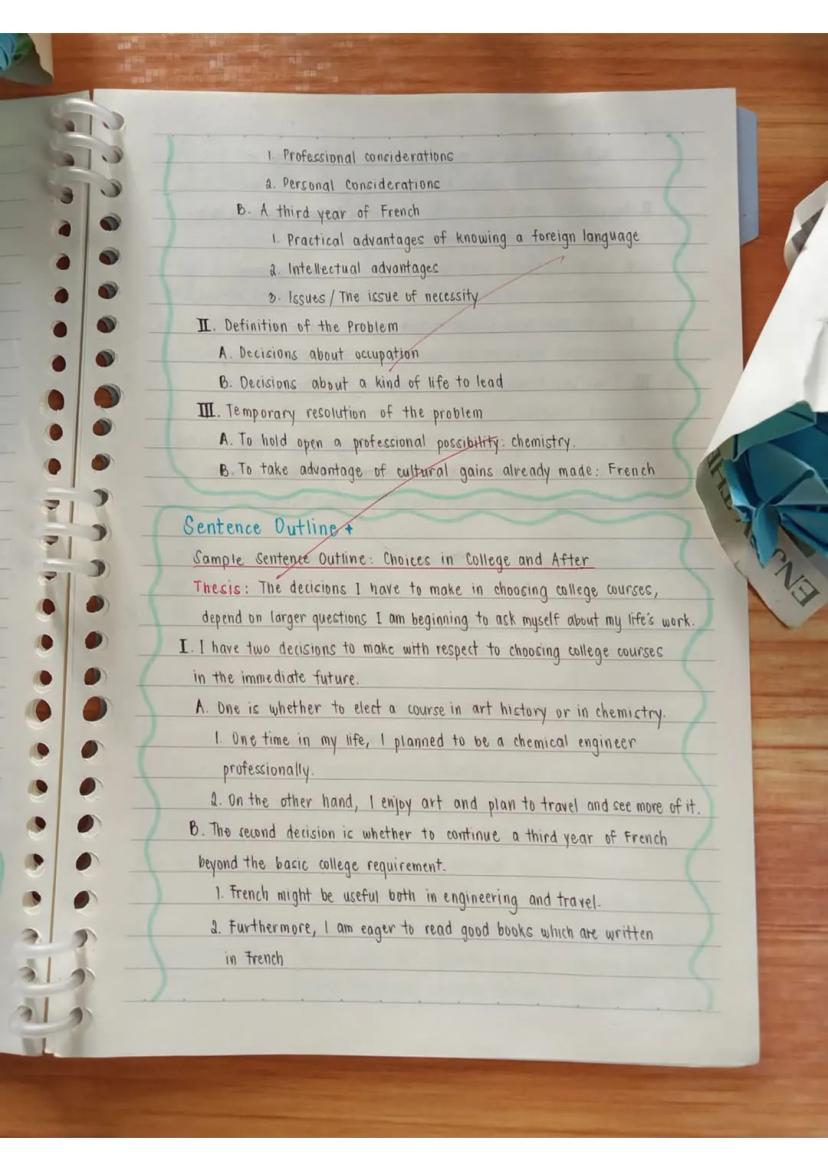 1. Professional considerations
2. Personal Considerations
B. A third year of French
1. Practical advantages of knowing a foreign language
2. Intellectual advantages
3. Issues / The issue of necessity
II. Definition of the Problem
A. Decisions about occupation
B. Decisions about a kind of life to lead
III. Temporary resolution of the problem
A. To hold open a professional possibility: chemistry.
B. To take advantage of cultural gains already made: French
Sentence Outline +
Sample Sentence Outline: Choices in College and After
Thesis: The decisions I have to make in choosing college courses,
depend on larger questions I am beginning to ask myself about my life's work.
I. I have two decisions to make with respect to choosing college courses
in the immediate future.
A. One is whether to elect a course in art history or in chemistry.
1. One time in my life, I planned to be a chemical engineer
professionally.
2. On the other hand, I enjoy art and plan to travel and see more of it.
B. The second decision is whether to continue a third year of French
beyond the basic college requirement.
1. French might be useful both in engineering and travel.
2. Furthermore, I am eager to read good books which are written
in French